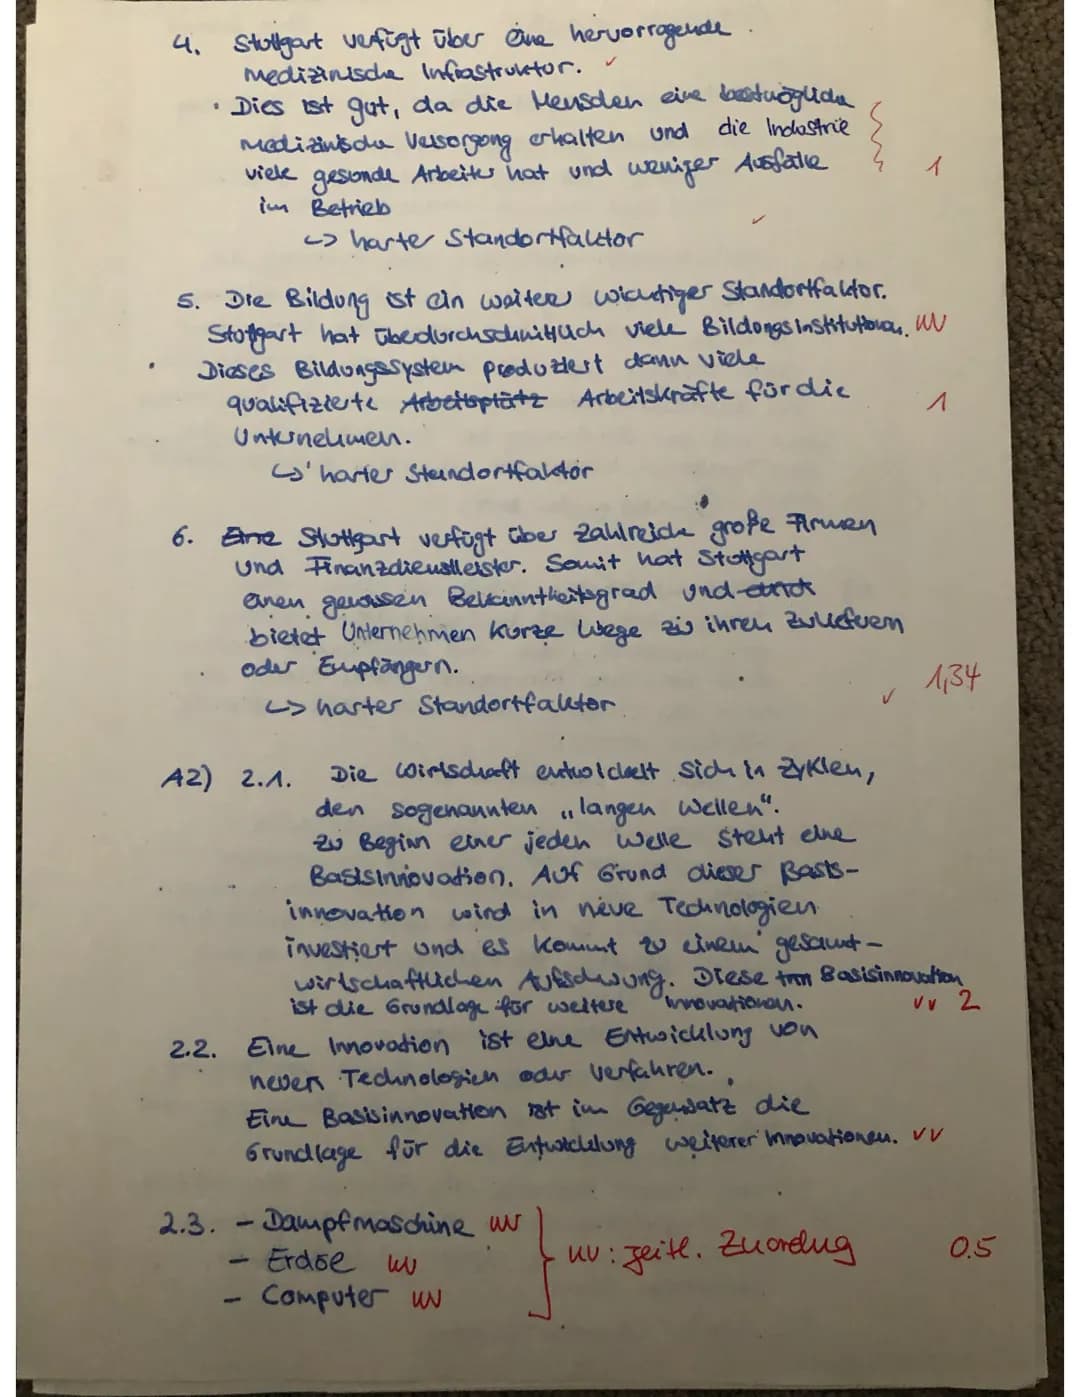 4. Stuttgart verfügt über eine hervorragende
medizinische Infrastruktur. ✓
· Dies ist gut, da die Menschen eine bestmögliche
medizinische Versorgung erhalten und die Industrie
viele gesunde Arbeiter hat und weniger Ausfälle 1
im Betrieb
↳ harter Standortfaktor ✓
5. Die Bildung ist ein weiterer wichtiger Standortfaktor.
Stuttgart hat überdurchschnittlich viele Bildungsinstitutionen. uv
Dieses Bildungssystem produziert dann viele
qualifizierte Arbeitsplätz Arbeitskräfte für die 1
Unternehmen.
↳ harter Standortfaktor
6. Eine Stuttgart verfügt über zahlreiche große Firmen
und Finanzdienstleister. Somit hat Stuttgart
einen gewissen Bekanntheitsgrad und
bietet Unternehmen kurze Wege zu ihren Zuliefuern
oder Empfängern.
↳ harter Standortfaktor ✓ 1,34
A2) 2.1. Die Wirtschaft entwickelt sich in Zyklen,
den sogenannten „langen Wellen".
Zu Beginn einer jeden Welle steht eine
Basisinnovation. Auf Grund dieser Basis-
innovation wird in neue Technologien
investiert und es kommt zu einem gesamt-
wirtschaftlichen Aufschwung. Diese Basisinnovation
ist die Grundlage für weitere Innovationen. ✓✓ 2
2.2. Eine Innovation ist eine Entwicklung von
neuen Technologien oder Verfahren.
Eine Basisinnovation ist im Gegensatz die
Grundlage für die Entwicklung weiterer Innovationen. ✓✓
2.3. - Dampfmaschine uv
- Erdöe uv
- Computer uv
uv: zeitl. Zuordng 0.5